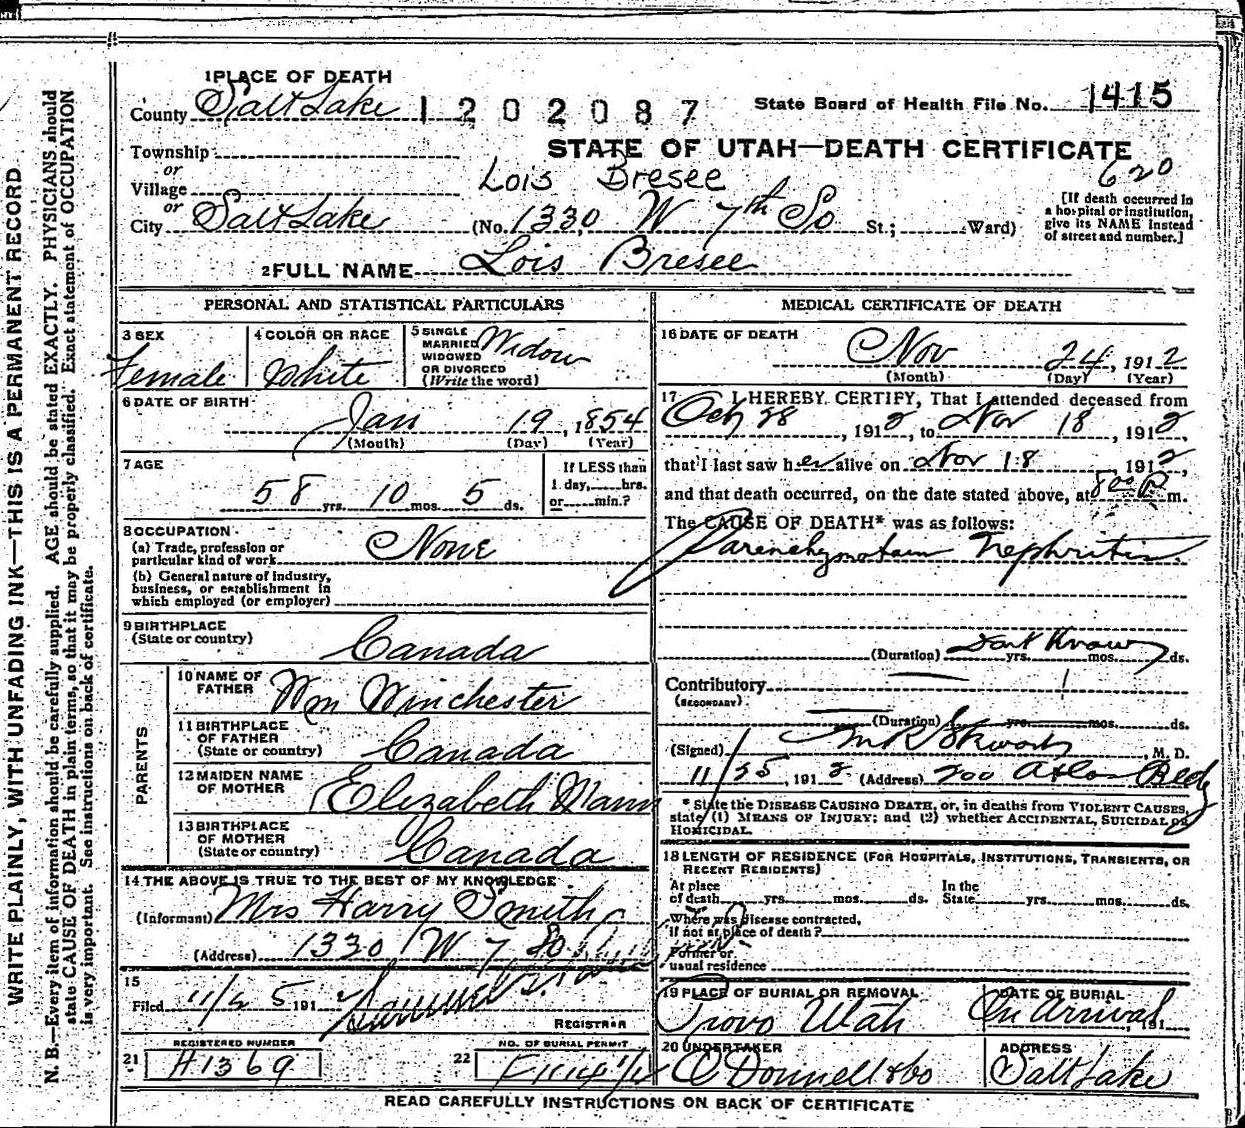 1 PLACE OF DEATH
County Salt Lake 1202087 State Board of Health File No. 1415
Township
or
STATE OF UTAH—DEATH CERTIFICATE
Village Lois Bresee 620
or
City Salt Lake (No. 1330 W 7th So St.; Ward)
[If death occurred in
a hospital or institution,
give its NAME instead
of street and number.]
2 FULL NAME Lois Bresee
PERSONAL AND STATISTICAL PARTICULARS
3 SEX Female
4 COLOR OR RACE White
5 SINGLE
MARRIED
WIDOWED
OR DIVORCED
(Write the word) Widow
6 DATE OF BIRTH
Jan 19, 1854
(Month) (Day) (Year)
7 AGE
58 yrs. 10 mos. 5 ds.
If LESS than
1 day, hrs.
or min.?
8 OCCUPATION
(a) Trade, profession or
particular kind of work None
(b) General nature of industry,
business, or establishment in
which employed (or employer)
9 BIRTHPLACE
(State or country) Canada
PARENTS
10 NAME OF
FATHER Wm Winchester
11 BIRTHPLACE
OF FATHER
(State or country) Canada
12 MAIDEN NAME
OF MOTHER Elizabeth Mann
13 BIRTHPLACE
OF MOTHER
(State or country) Canada
14 THE ABOVE IS TRUE TO THE BEST OF MY KNOWLEDGE
(Informant) Mrs Harry Smith
(Address) 1330 W 7 So
15
Filed 11/25 191
REGISTRAR
REGISTERED NUMBER
21 H1369
NO. OF BURIAL PERMIT
22
MEDICAL CERTIFICATE OF DEATH
16 DATE OF DEATH
Nov 24, 1912
(Month) (Day) (Year)
17 I HEREBY CERTIFY, That I attended deceased from
Oct 28, 1912, to Nov 18, 1912,
that I last saw her alive on Nov 18, 1912,
and that death occurred, on the date stated above, at 8 00 P m.
The CAUSE OF DEATH* was as follows:
Parenchymatous Nephritis
(Duration) Dont Know yrs. mos. ds.
Contributory
(SECONDARY)
(Duration) yrs. mos. ds.
(Signed) M. D.
11/25, 1912 (Address) 200 Atlas Bldg
* State the DISEASE CAUSING DEATH, or, in deaths from VIOLENT CAUSES,
state (1) MEANS OF INJURY; and (2) whether ACCIDENTAL, SUICIDAL or
HOMICIDAL.
18 LENGTH OF RESIDENCE (FOR HOSPITALS, INSTITUTIONS, TRANSIENTS, OR
RECENT RESIDENTS)
At place
of death yrs. mos. ds.
In the
State yrs. mos. ds.
Where was disease contracted,
if not at place of death?
Former or
usual residence
19 PLACE OF BURIAL OR REMOVAL
Provo Utah
DATE OF BURIAL
On Arrival, 191
20 UNDERTAKER
O Donnell & Co
ADDRESS
Salt Lake
READ CAREFULLY INSTRUCTIONS ON BACK OF CERTIFICATE
WRITE PLAINLY, WITH UNFADING INK—THIS IS A PERMANENT RECORD
N. B.—Every item of information should be carefully supplied. AGE should be stated EXACTLY. PHYSICIANS should
state CAUSE OF DEATH in plain terms, so that it may be properly classified. Exact statement of OCCUPATION
is very important. See instructions on back of certificate.